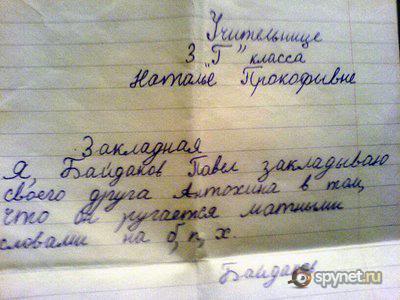 Учительнице
3 „Г" класса
Наталье Прокофьвне
Закладная
Я, Байдаков Павел закладываю
своего друга Антохина в том,
что он ругается матными
словами на б, п, х.
Байдаков
spynet.ru